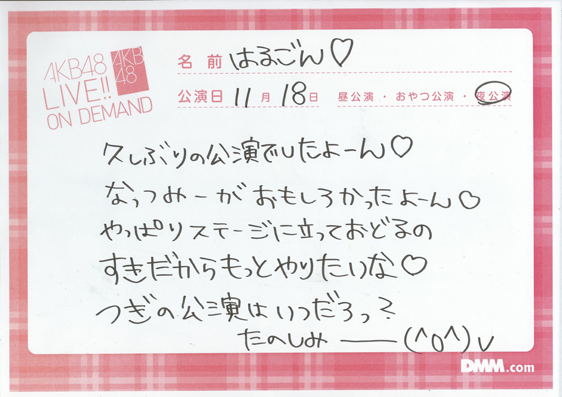 AKB48
LIVE!!
ON DEMAND
AKB
48
名前 はるごん♡
公演日 11月18日 昼公演・おやつ公演・夜公演
久しぶりの公演でしたよーん♡
なっつみーがおもしろかったよーん♡
やっぱりステージに立っておどるの
すきだからもっとやりたいな♡
つぎの公演はいつだろっ?
たのしみ――(^o^)v
DMM.com